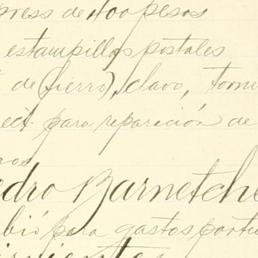 press de 400 pesos
estampillas postales
de (fierro), clavo, torni
ect. para reparación de
nos
edro Barnetche
bió para gastos parti